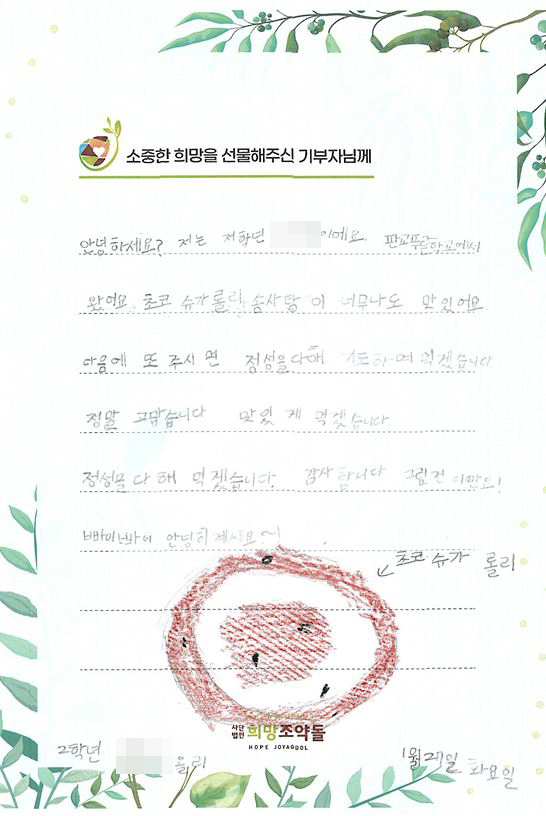 소중한 희망을 선물해주신 기부자님께
안녕하세요? 저는 저학년 이에요. 판교푸른학교에서
왔어요. 초코 슈가롤리, 솜사탕 이 너무나도 맛있어요
다음에 또 주시면 정성을 다해 하며 먹겠습니다.
정말 고맙습니다 맛있게 먹겠습니다
정성을 다해 먹겠습니다. 감사합니다 그럼 전 이만요!
빠이빠이 안녕히계세요~
초코 슈가 롤리
사단법인 희망조약돌
HOPE JOYAGDOL
2학년 올리
1월 27일 화요일